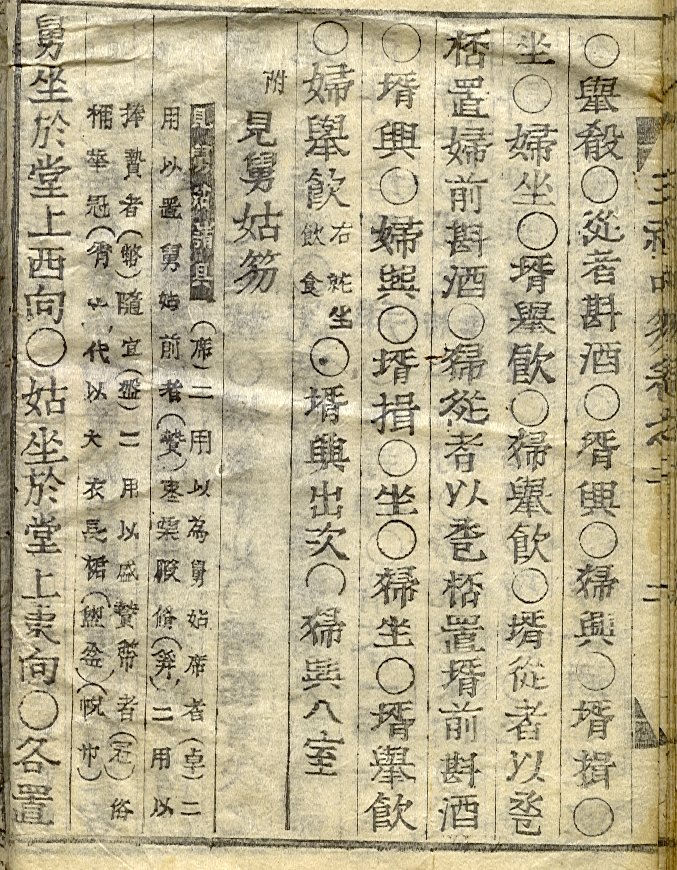 ○舉殽○從者斟酒○壻興○婦興○壻揖○
坐○婦坐○壻舉飮○婦舉飮○壻從者以卺
桮置婦前斟酒○婦從者以卺桮置壻前斟酒
○壻興○婦興○壻揖○坐○婦坐○壻舉飮
○婦舉飮右就坐飮食○壻興出次○婦興入室
附 見舅姑笏
見舅姑諸具(席)二用以為舅姑席者(卓)二
用以置舅姑前者(贄)棗栗腶脩(笲)二用以
捧贄者(幣)隨宜(盤)二用以盛贄幣者(冠)俗
稱華冠(綃衣)代以大衣長裙(盥盆)(帨巾)
舅坐於堂上西向○姑坐於堂上東向○各置